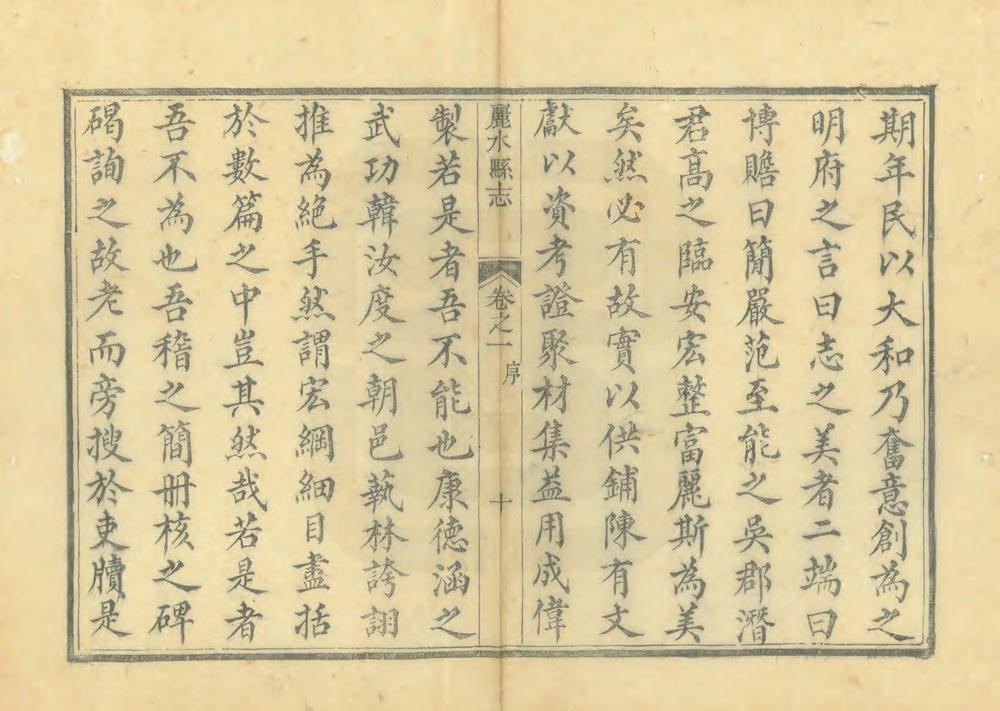 期年民以大和乃奮意創為之
明府之言曰志之美者二端曰
博贍曰簡嚴范至能之吳郡潛
君高之臨安宏整富麗斯為美
矣然必有故實以供鋪陳有文
獻以資考證聚材集益用成偉
麗水縣志 卷之一 序 十
製若是者吾不能也康德涵之
武功韓汝度之朝邑蓺林誇詡
推為絕手然謂宏綱細目盡括
於數篇之中豈其然哉若是者
吾不為也吾稽之簡冊核之碑
碣詢之故老而旁搜於吏牘是